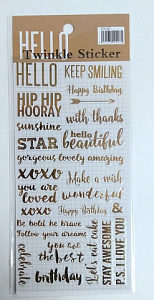 HELLO
Twinkle Sticker
HELLO KEEP SMILING
HIP HIP HOORAY Happy Birthday
sunshine with thanks
STAR hello beautiful
gorgeous lovely amazing
xoxo Make a wish
you are loved wonderful
xoxo Happy Birthday &
Be bold be brave
Follow your dreams
you are the best
celebrate birthday
Let's eat cake
STAY AWESOME
P.S. I LOVE YOU